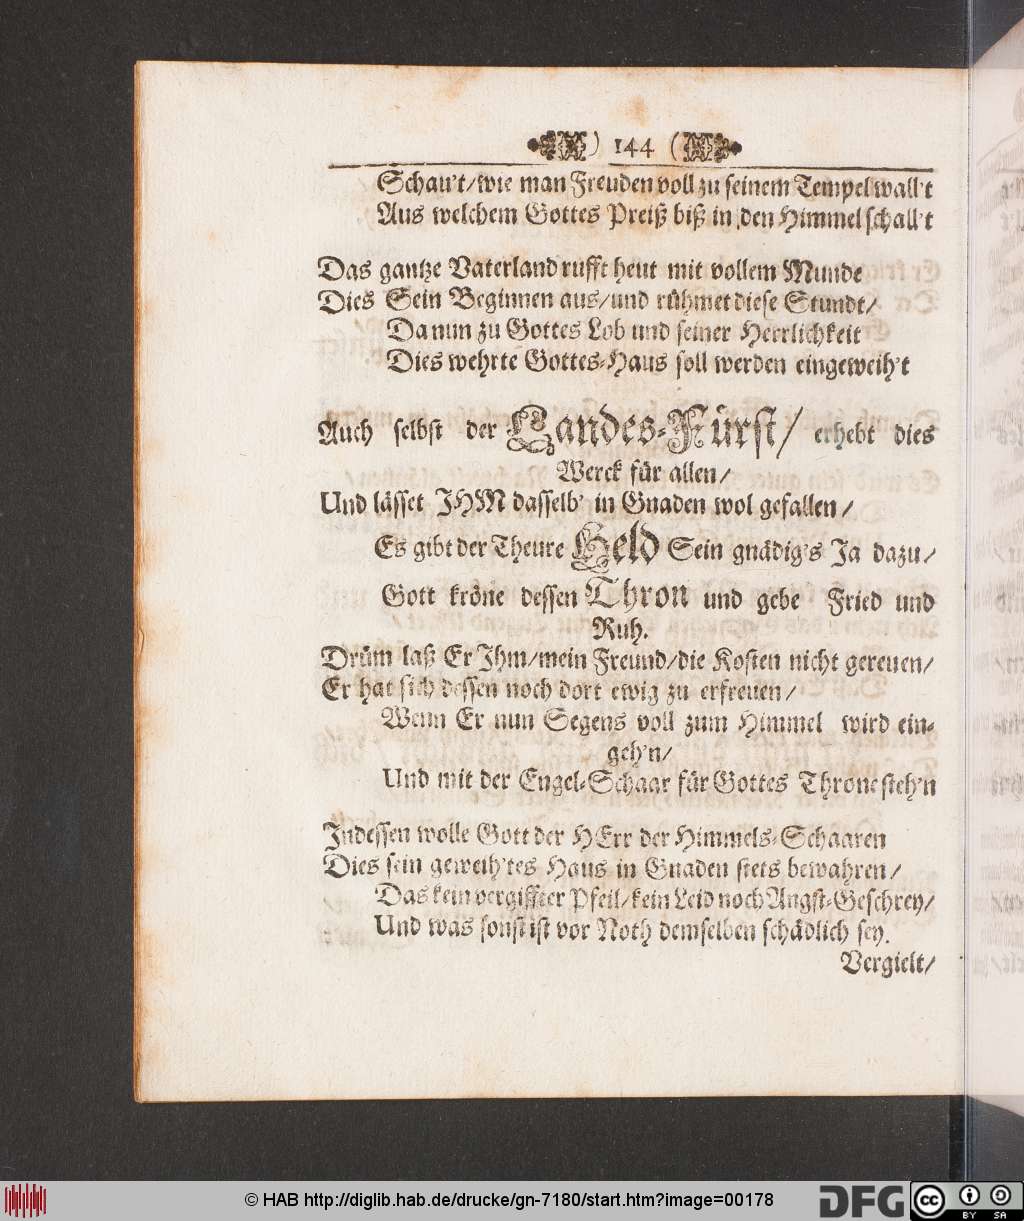 ) 144 (
Schau't/wie man Freuden voll zu seinem Tempel wall't
Aus welchem Gottes Preiß biß in den Himmel schall't
Das gantze Vaterland rufft heut mit vollem Munde
Dies Sein Beginnen aus/und rühmet diese Stundt/
Da nun zu Gottes Lob und seiner Herrlichkeit
Dies wehrte Gottes-Haus soll werden eingeweih't
Auch selbst der Landes-Fürst/ erhebt dies
Werck für allen/
Und lässet IHM dasselb' in Gnaden wol gefallen/
Es gibt der Theure Held Sein gnädig's Ja dazu/
Gott kröne dessen Thron und gebe Fried und
Ruh.
Drüm laß Er Ihm/mein Freund/die Kosten nicht gereuen/
Er hat sich dessen noch dort ewig zu erfreuen/
Wenn Er nun Segens voll zum Himmel wird ein-
geh'n/
Und mit der Engel-Schaar für Gottes Throne steh'n
Indessen wolle Gott der HErr der Himmels-Schaaren
Dies sein geweih'tes Haus in Gnaden stets bewahren/
Das kein vergiffter Pfeil/kein Leid noch Angst-Geschrey/
Und was sonst ist vor Noth demselben schädlich sey.
Vergielt/
© HAB http://diglib.hab.de/drucke/gn-7180/start.htm?image=00178
DFG
cc BY SA